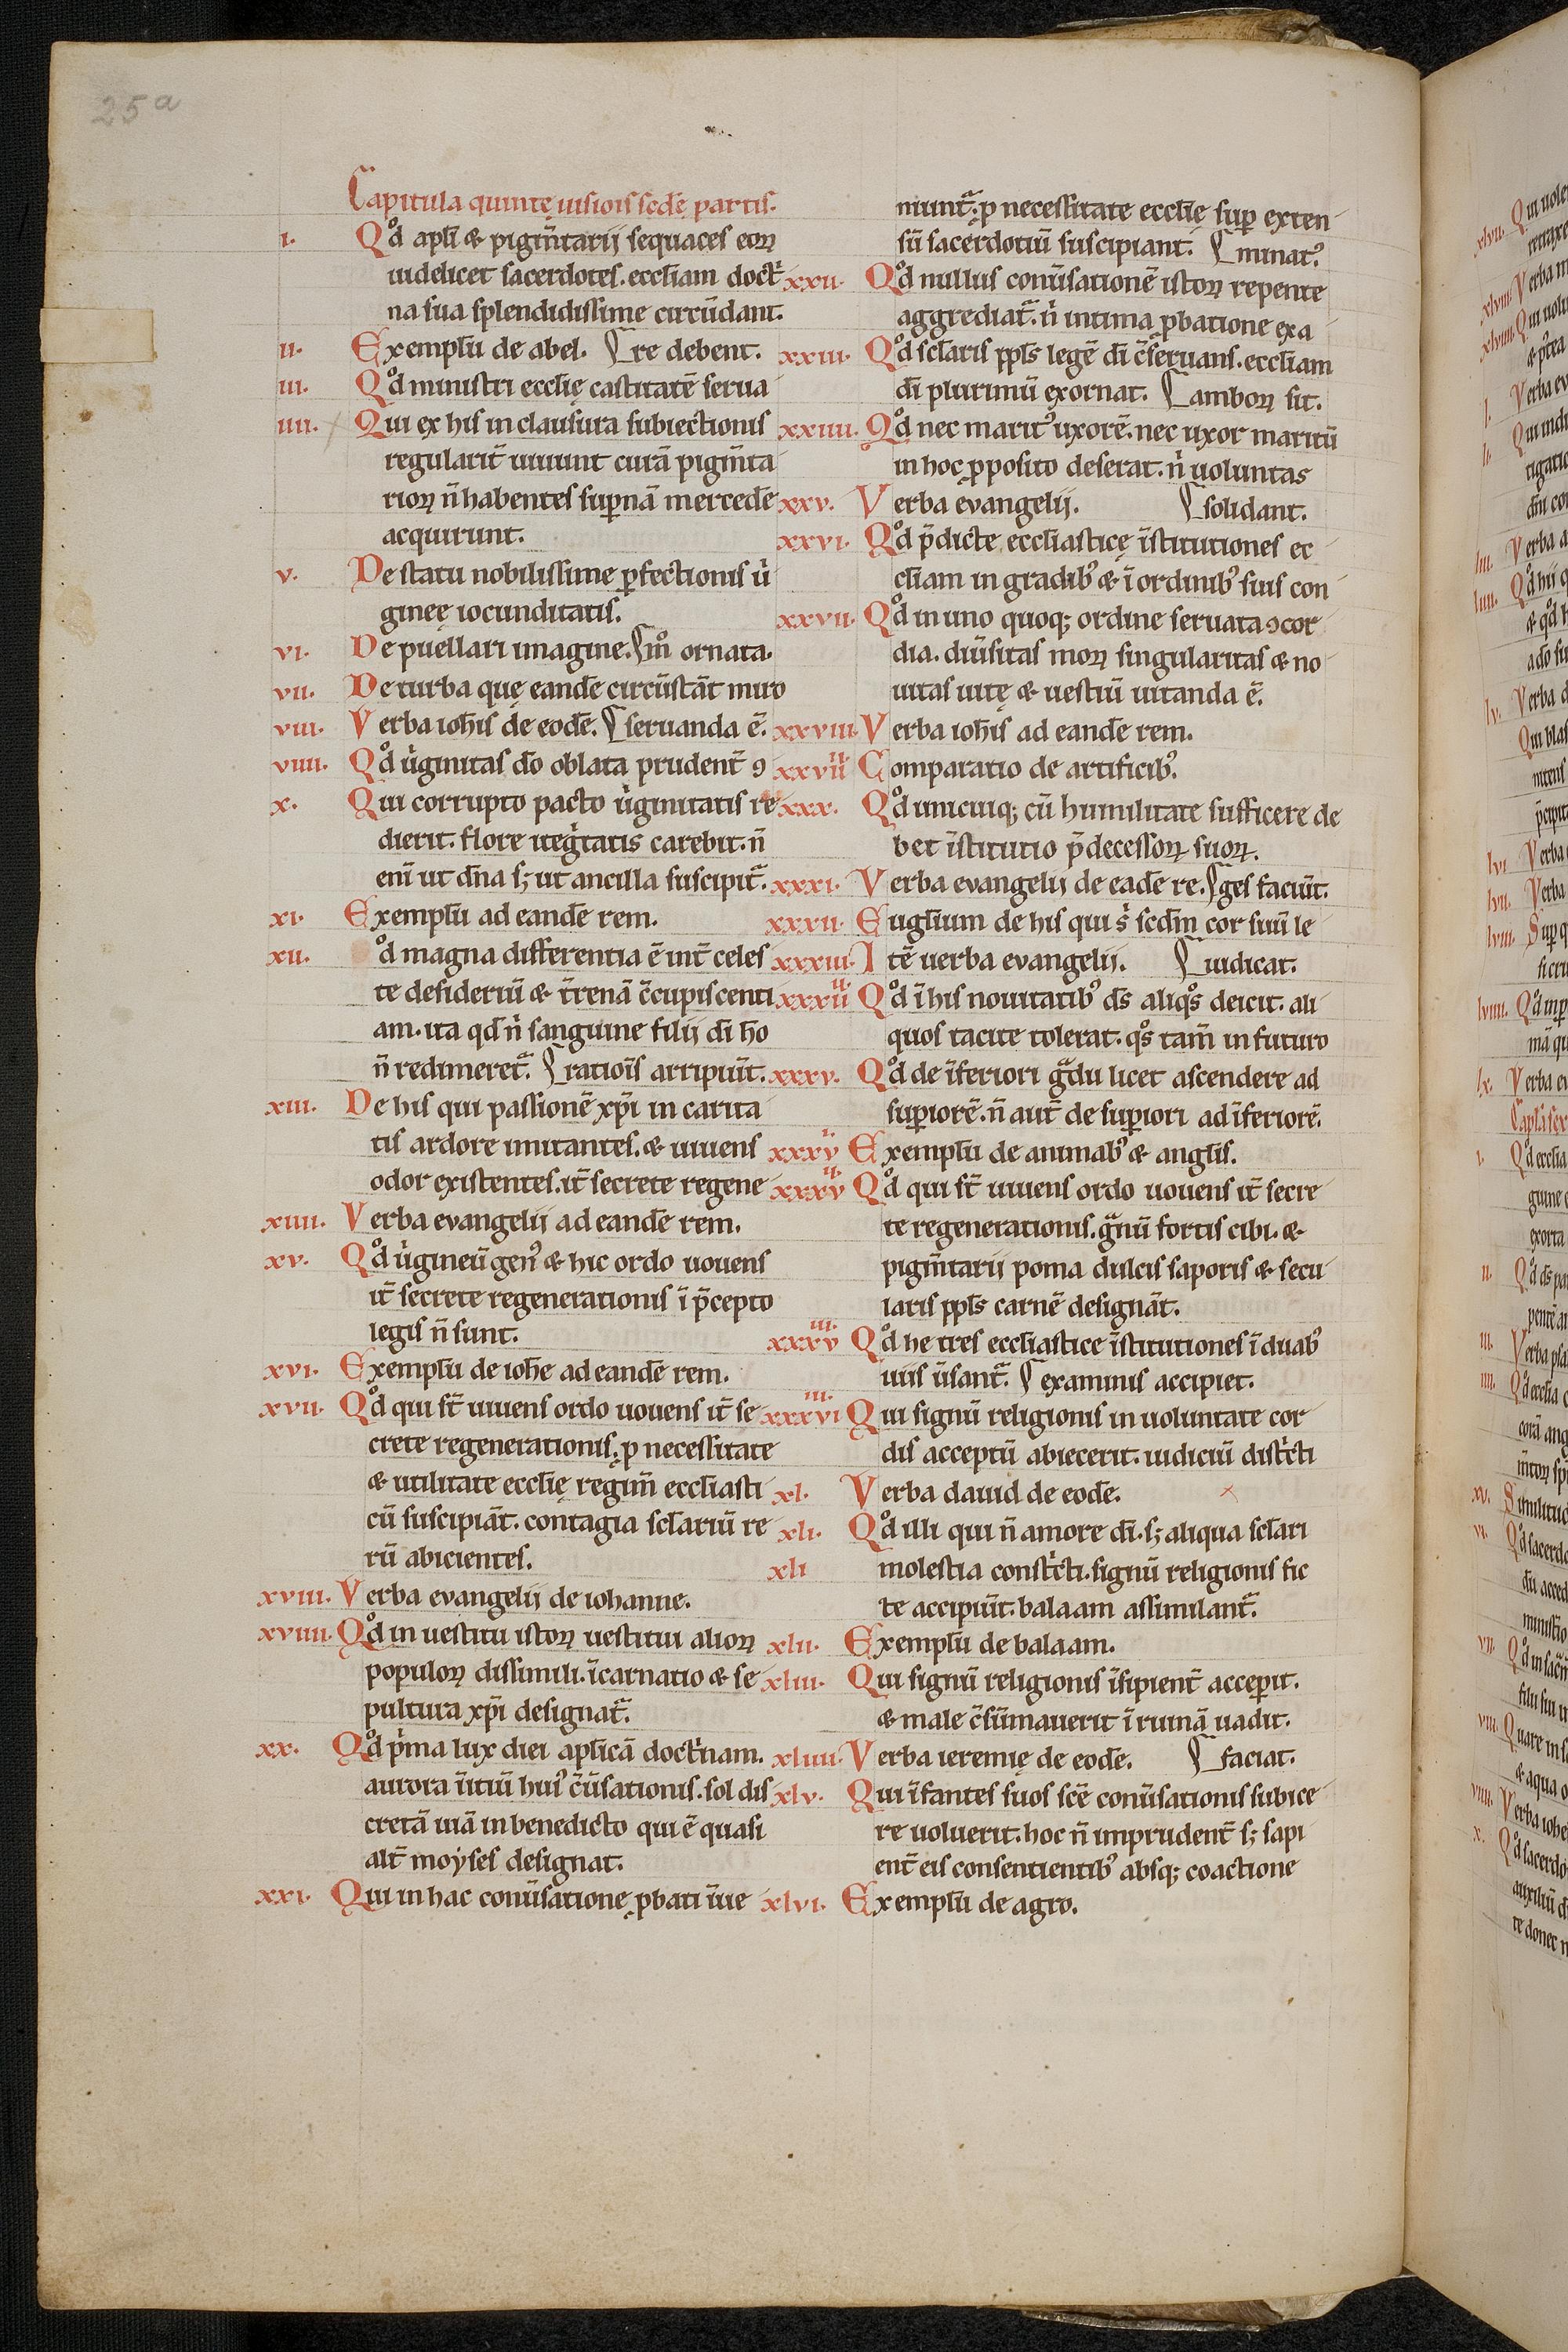 25a
Capitula quintę uisiois scde partis.
i. Qd apli & pigmtarij sequaces eoꝝ
uidelicet sacerdotes. eccliam doct
na sua splendidissime circūdant.
ii. Exemplū de abel. re debent.
iii. Qd ministri ecclię castitatē serua
iiii. Qui ex his in clausura subiectionis
regularit̄ uiuunt curā pigm̄ta
rioꝝ n̄ habentes supnā mercedē
acquirunt.
v. De statu nobilissime pfectionis ui
gineę iocunditatis.
vi. De puellari imagine. mo ornata.
vii. De turba quę eandē circūstāt miro
viii. Verba iohis de eodē. seruanda ē.
viiii. Qd uiginitas do oblata prudent̄ ꝯ
x. Qui corrupto pacto uiginitatis re
dierit. flore itegtatis carebit. n̄
eni ut dn̄a sꝫ ut ancilla suscipit̄.
xi. Exemplū ad eandē rem.
xii. od magna differentia ē int̄ celes
te desideriū & t̄renā c̄cupiscenti
am. ita qd n̄ sanguine filij di ho
n̄ redimeret̄. ratiois arripiūt.
xiii. De his qui passionē xp̄i in carita
tis ardore imitantes. & uiuens
odor existentes. it̄ secrete regene
xiiii. Verba evangelij ad eandē rem.
xv. Qd uigineū gen᾽ & hic ordo uouens
it̄ secrete regenerationis ī p̄cepto
legis n̄ sunt.
xvi. Exemplū de iohe ad eandē rem.
xvii. Qd qui st̄ uiuens ordo uouens it̄ se
crete regenerationis, p necessitate
& utilitate ecclię regim̄ ecclīasti
cū suscipiāt. contagia sclariū re
rū abicientes.
xviii. Verba evangelij de iohanne.
xviiii. Qd in uestitu istoꝝ uestitui alioꝝ
populoꝝ dissimili. īcarnatio & se
pultura xp̄i designat̄.
xx. Qd pma lux diei aplicā doctnam.
aurora initiū hui᾽ c̄uersationis. sol dis
cretā uiā in benedicto qui ē quasi
alt̄ moyses designat.
xxi. Qui in hac conūsatione pbati iue
niunt̄. p necessitate ecclię sup exten
sū sacerdotiū suscipiant. minat᾽.
xxii. Qd nullus conūsationē istoꝝ repente
aggrediat̄. n̄ intima pbatione exa
xxiii. Qd sclaris ppls legē di c̄seruans. eccliam
di plurimū exornat. amboꝝ sit.
xxiiii. Qd nec marit᾽ uxorē. nec uxor maritū
in hoc pposito deserat. n̄ uoluntas
xxv. Verba evangelij. solidant.
xxvi. Qd p̄dicte eccliasticę īstitutiones ec
cliam in gradib᾽ & ī ordinib᾽ suis con
xxvii. Qd in uno quoqꝫ ordine seruata ꝯcor
dia. diūsitas moꝝ singularitas & no
uitas uitę & uestiū uitanda ē.
xxviii. Verba iohis ad eandē rem.
xxviiii Comparatio de artificib᾽.
xxx. Qd unicuiqꝫ cū humilitate sufficere de
bet īstitutio p̄decessoꝝ suoꝝ.
xxxi. Verba evangelij de eadē re. ges faciūt.
xxxii. Euglium de his qui s̄ scdm cor suū le
xxxiii. Itē uerba evangelij. iudicat.
xxxiiii Qd ī his nouitatib᾽ ds aliqos deicit. ali
quos tacite tolerat. qos tam̄ in futuro
xxxv. Qd de īferiori gdu licet ascendere ad
supiorē. n̄ aut̄ de supiori ad īferiorē.
xxxvi Exemplū de animab᾽ & anglis.
xxxvii Qd qui st̄ uiuens ordo uouens it̄ secre
te regenerationis. gnū fortis cibi. &
pigm̄tarij poma dulcis saporis & secu
laris ppls carnē designāt.
xxxviii Qd he tres eccliastice īstitutiones ī duab᾽
uiis ūsant̄. examinis accipiet.
xxxviiii Qui signū religionis in uoluntate cor
dis acceptū abiecerit. iudiciū districti
xl. Verba dauid de eodē.
xli. Qd illi qui n̄ amore di. sꝫ aliqua sclari
xli molestia constcti. signū religionis fic
te accipiūt. balaam assimilant̄.
xlii. Exemplū de balaam.
xliii. Qui signū religionis īsipient̄ acceperit.
& male c̄sūmauerit ī ruinā uadit.
xliiii. Verba ieremię de eodē. faciat.
xlv. Qui īfantes suos scē conūsationis subice
re uoluerit. hoc n̄ imprudent̄ sꝫ sapi
ent̄ eis consentientib᾽ absqꝫ coactione
xlvi. Exemplū de agro.